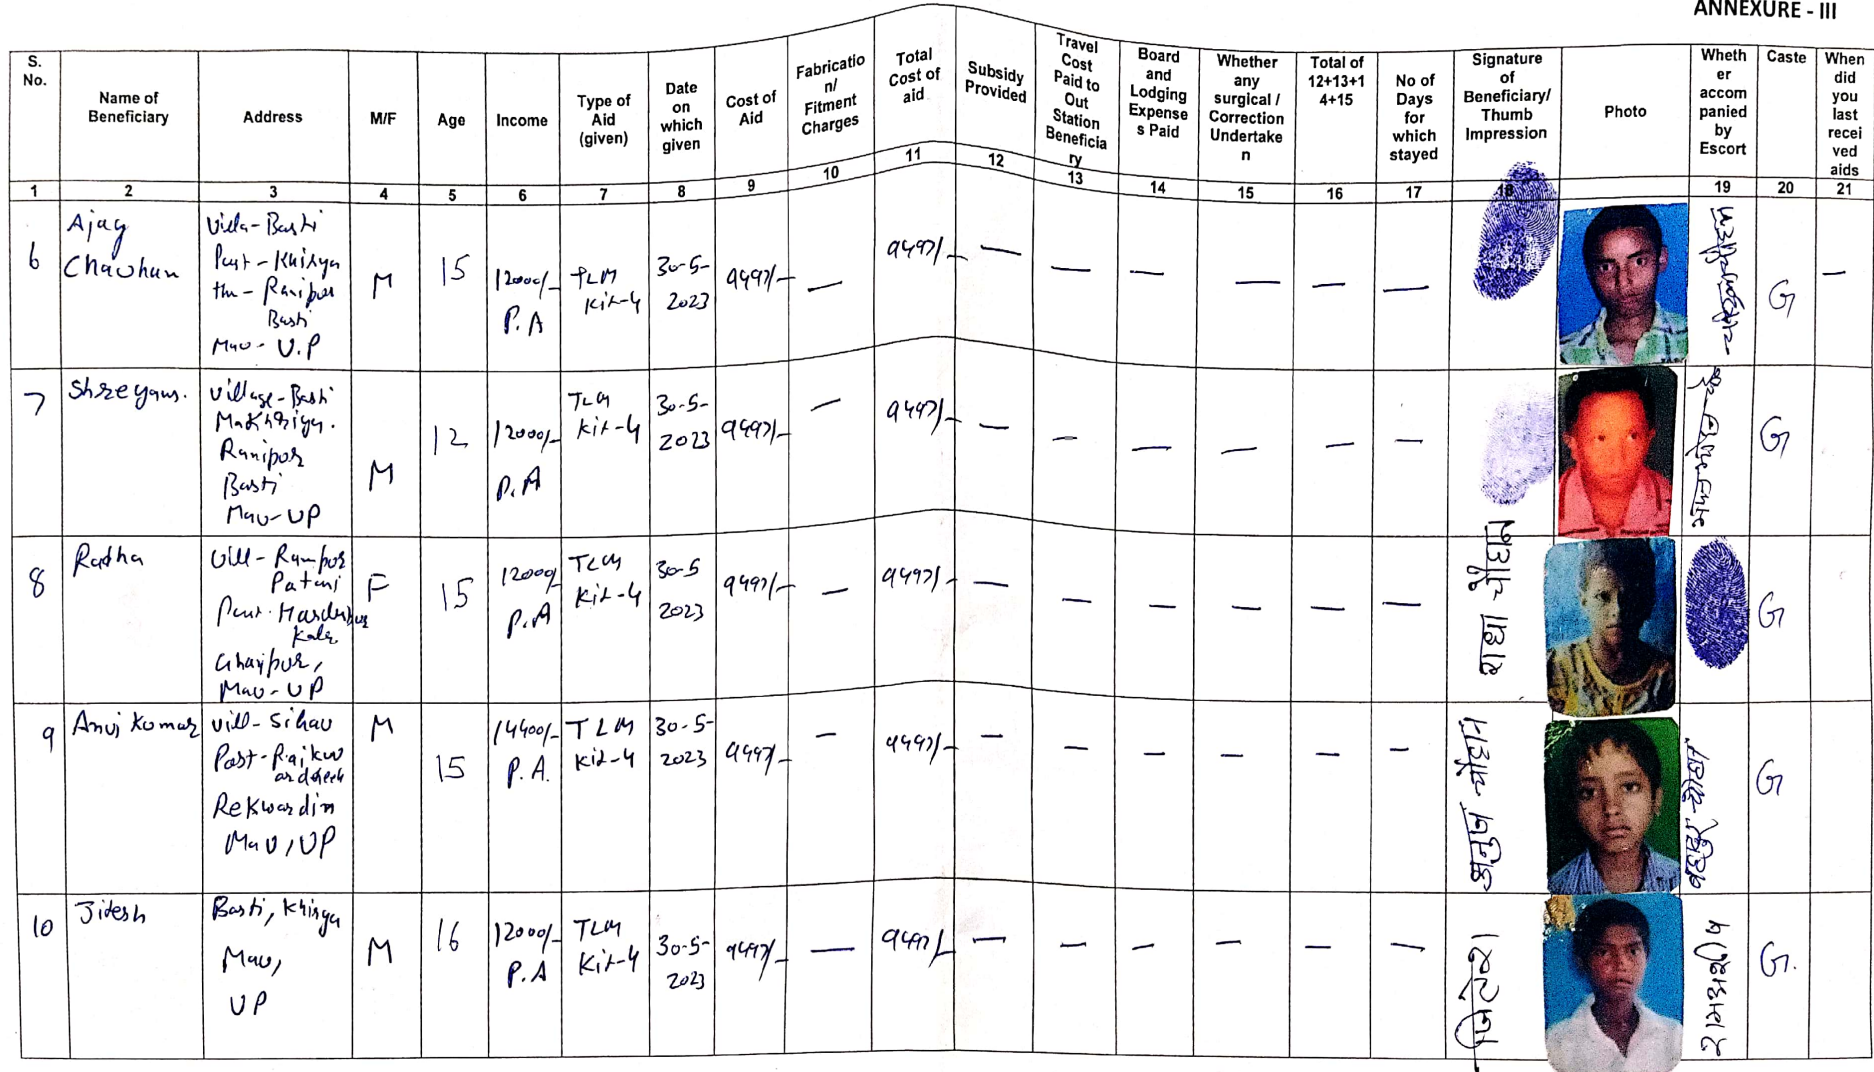 ANNEXURE - III
S.
No.
Name of
Beneficiary
Address
M/F
Age
Income
Type of
Aid
(given)
Date
on
which
given
Cost of
Aid
Fabricatio
n/
Fitment
Charges
Total
Cost of
aid
Subsidy
Provided
Travel
Cost
Paid to
Out
Station
Beneficia
ry
Board
and
Lodging
Expense
s Paid
Whether
any
surgical /
Correction
Undertake
n
Total of
12+13+1
4+15
No of
Days
for
which
stayed
Signature
of
Beneficiary/
Thumb
Impression
Photo
Wheth
er
accom
panied
by
Escort
Caste
When
did
you
last
recei
ved
aids
1 2 3 4 5 6 7 8 9 10 11 12 13 14 15 16 17 18 19 20 21
6
Ajay
Chauhan
Villa-Basti
Post-Khirya
th-Ranipur
Basti
Mau-U.P
M
15
12000/-
P.A
TLM
Kit-4
30-5-
2023
9497/-
—
9497/-
—
—
—
—
—
—
G
—
7
Shreyans.
Village-Basti
Makhriya.
Ranipor
Basti
Mau-UP
M
12
12000/-
P.A
TLM
Kit-4
30-5-
2023
9497/-
—
9497/-
—
—
—
—
—
—
G
8
Radha
Vill-Rampor
Patani
Post-Hardaspur
Kala
Ghazipur,
Mau-UP
F
15
12000/-
P.A
TLM
Kit-4
30-5
2023
9497/-
—
9497/-
—
—
—
—
—
—
G
9
Anuj Kumar
Vill-Sihau
Rekwardih
Mau, UP
M
15
14400/-
P.A.
TLM
Kit-4
30-5-
2023
9497/-
—
9497/-
—
—
—
—
—
—
G
10
Jitesh
Basti, Khirya
Mau,
UP
M
16
12000/-
P.A
TLM
Kit-4
30-5-
2023
9497/-
—
9497/-
—
—
—
—
—
—
G.